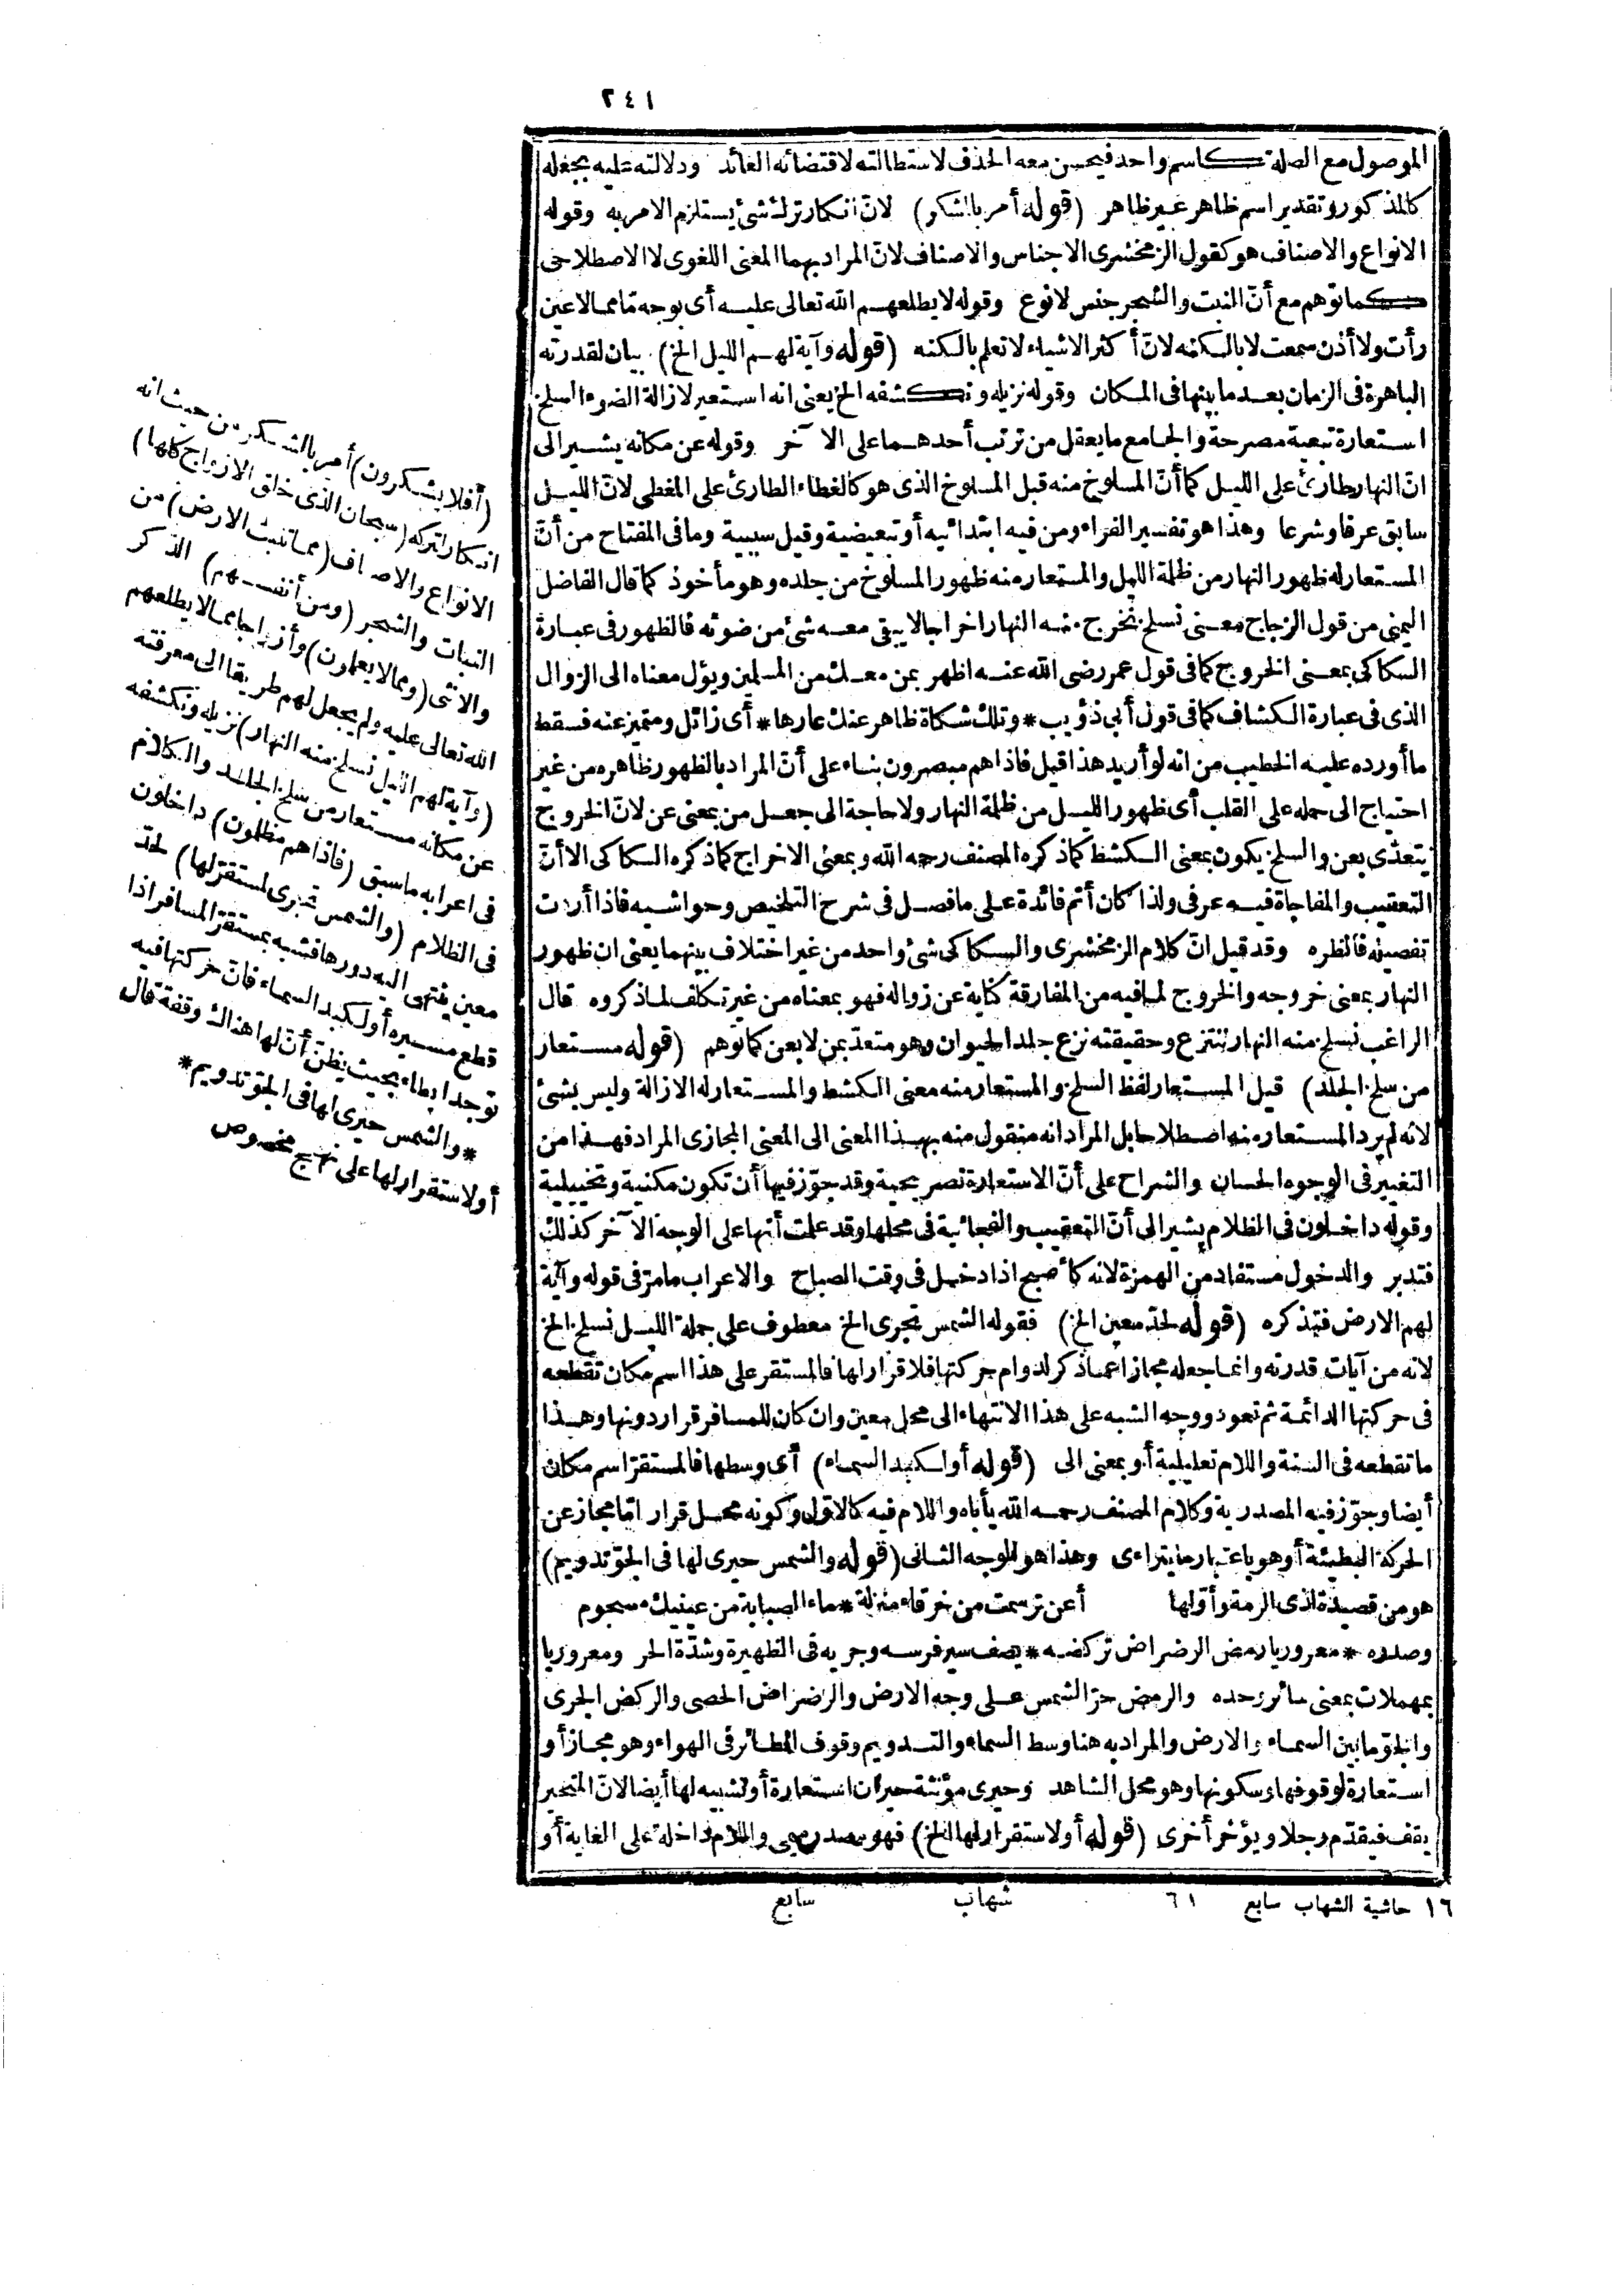 ٢٤١
الموصول مع الصلة كاسم واحد فيحسن معه الحذف لاستطالته لاقتضائه العائد ودلالته عليه بجعله
كالمذكور وتقدير اسم ظاهر غير ظاهر (قوله أمر بالشكر) لانّ انكار ترك شئ يستلزم الامر به وقوله
الانواع والاصناف هو كقول الزمخشرى الاجناس والاصناف لانّ المراد بهما المعنى اللغوى لا الاصطلاحى
كما توهم مع أنّ النبت والشجر جنس لا نوع وقوله لا يطلعهم الله تعالى عليه أى بوجه تما مما لا عين
رأت ولا أذن سمعت لا بالكنه لانّ أكثر الاشياء لا تعلم بالكنه (قوله وآية لهم الليل الخ) بيان لقدرته
الباهرة فى الزمان بعد ما بينها فى المكان وقوله نزيله ونكشفه الخ يعنى انه استعير لازالة الضوء السلخ
استعارة تبعية مصرحة والجامع ما يعقل من ترتب أحدهما على الآخر وقوله عن مكانه يشير الى
انّ النهار طارئ على الليل كما أنّ المسلوخ منه قبل المسلوخ الذى هو كالغطاء الطارئ على المغطى لانّ الليل
سابق عرفا وشرعا وهذا هو تفسير الفراء ومن فيه ابتدائيه أو تبعيضية وقيل سببية وما فى المفتاح من أنّ
المستعار له ظهور النهار من ظلمة الليل والمستعار منه ظهور المسلوخ من جلده وهو مأخوذ كما قال الفاضل
اليمنى من قول الزجاج معنى نسلخ نخرج منه النهار اخراجا لا يبقى معه شئ من ضوئه فالظهور فى عبارة
السكاكى بمعنى الخروج كما فى قول عمر رضى الله عنه اظهر بمن معك من المسلمين ويؤل معناه الى الزوال
الذى فى عبارة الكشاف كما فى قول أبى ذؤيب * وتلك شكاة ظاهر عنك عارها * أى زائل ومتميز عنه فسقط
ما أورده عليه الخطيب من انه لو أريد هذا قيل فاذا هم مبصرون بناء على أنّ المراد بالظهور ظاهره من غير
احتياج الى حمله على القلب أى ظهور الليل من ظلمة النهار ولا حاجة الى جعل من بمعنى عن لانّ الخروج
يتعدّى بعن والسلخ يكون بمعنى الكشط كما ذكره المصنف رحمه الله وبمعنى الاخراج كما ذكره السكاكى الا أنّ
التعقيب والمفاجاة فيه عرفى ولذا كان أتم فائدة على ما فصل فى شرح التلخيص وحواشيه فاذا أردت
تفصيله فانظره وقد قيل انّ كلام الزمخشرى والسكاكى شئ واحد من غير اختلاف بينهما يعنى ان ظهور
النهار بمعنى خروجه والخروج لما فيه من المفارقة كناية عن زواله فهو بمعناه من غير تكلف لما ذكروه قال
الراغب نسلخ منه النهار ننتزع وحقيقته نزع جلد الحيوان وهو متعدّ بمن لا بعن كما توهم (قوله مستعار
من سلخ الجلد) قيل المستعار لفظ السلخ والمستعار منه معنى الكشط والمستعار له الازالة وليس بشئ
لانه لم يرد المستعار منه اصطلاحا بل المراد انه منقول منه بهذا المعنى الى المعنى المجازى المراد فهذا من
التغيير فى الوجوه الحسان والشراح على أنّ الاستعارة تصريحية وقد جوّز فيها أن تكون مكنية وتخييلية
وقوله داخلون فى الظلام يشير الى أنّ التعقيب والفجائية فى محلها وقد علمت أنها على الوجه الآخر كذلك
فتدبر والدخول مستفاد من الهمزة لانه كأصبح اذا دخل فى وقت الصباح والاعراب ما مرّ فى قوله وآية
لهم الارض فتذكره (قوله لحدّ معين الخ) فقوله الشمس تجرى الخ معطوف على جملة الليل نسلخ الخ
لانه من آيات قدرته وانما جعله مجازا عما ذكر لدوام حركتها فلا قرار لها فالمستقر على هذا اسم مكان تقطعه
فى حركتها الدائمة ثم تعود ووجه الشبه على هذا الانتهاء الى محل معين وان كان للمسافر قرار دونها وهذا
ما تقطعه فى السنة واللام تعليلية أو بمعنى الى (قوله أو لكبد السماء) أى وسطها فالمستقرّ اسم مكان
أيضا وجوّز فيه المصدرية وكلام المصنف رحمه الله يأباه واللام فيه كالاوّل وكونه محل قرار امّا مجاز عن
الحركة البطيئة أو هو باعتبار ما يتراءى وهذا هو الوجه الثانى (قوله والشمس حيرى لها فى الجوّ تدويم)
هو من قصيدة لذى الرمة وأوّلها أعن ترسمت من خرقاء منزلة * ماء الصبابة من عينيك مسجوم
وصدره * معروريا رمض الرضراض تركضه * يصف سير فرسه وجريه فى الظهيرة وشدّة الحر ومعروريا
بمهملات بمعنى سائر وحده والرمض حرّ الشمس على وجه الارض والرضراض الحصى والركض الجرى
والجوّ ما بين السماء والارض والمراد به هنا وسط السماء والتدويم وقوف الطائر فى الهواء وهو مجاز أو
استعارة لوقوفها وسكونها وهو محل الشاهد وحيرى مؤنثة حيران استعارة أو تشبيه لها أيضا لانّ المتحير
يقف فيقدّم رجلا ويؤخر أخرى (قوله أو لاستقرار لها الخ) فهو مصدر ميمى واللام داخلة على الغاية أو
(أفلا يشكرون) أمر بالشكر من حيث انه
انكار لتركه (سبحان الذى خلق الازواج كلها)
الانواع والاصناف (مما تنبت الارض) من
النبات والشجر (ومن أنفسهم) الذكر
والانثى (ومما لا يعلمون) وأزواجا مما لا يطلعهم
الله تعالى عليه ولم يجعل لهم طريقا الى معرفته
(وآية لهم الليل نسلخ منه النهار) نزيله ونكشفه
عن مكانه مستعار من سلخ الجلد والكلام
فى اعرابه ما سبق (فاذا هم مظلمون) داخلون
فى الظلام (والشمس تجرى لمستقرّ لها) لحدّ
معين ينتهى اليه دورها فشبه بمستقرّ المسافر اذا
قطع مسيره أو لكبد السماء فانّ حركتها فيه
توجد ابطاء بحيث يظنّ أنّ لها هناك وقفة قال
* والشمس حيرى لها فى الجوّ تدويم *
أو لاستقرار لها على نهج مخصوص
١٦ حاشية الشهاب سابع ٦١ شهاب سابع